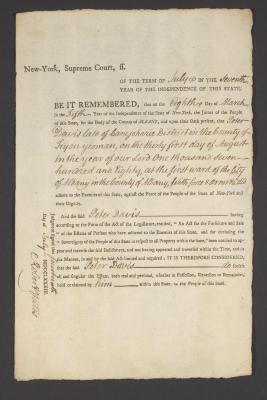 New-York, Supreme Court, ss.
OF THE TERM OF July IN THE Seventh
YEAR OF THE INDEPENDENCE OF THIS STATE.
BE IT REMEMBERED, that on the Eighth Day of March
in the Fifth Year of the Independence of the State of New-York, the Jurors of the People
of this State, for the Body of the County of ALBANY, did upon their Oath present, that Peter
Davis late of Canajoharie District in the County of
Tryon yeoman, on the thirty first day of August
in the year of our Lord One thousand Seven
hundred and Eighty, at the first ward of the City
of Albany in the County of Albany, with force & arms &c did
adhere to the Enemies of this State, against the Peace of the People of the State of New-York and
their Dignity.
And the said Peter Davis having
according to the Form of the Act of the Legislature, entitled, "An Act for the Forfeiture and Sale
"of the Estates of Persons who have adhered to the Enemies of this State, and for declaring the
"Sovereignty of the People of this State in respect to all Property within the same," been notified to appear
and traverse the said Indictment, and not having appeared and traversed within the Time, and in
the Manner, in and by the said Act limited and required: IT IS THEREFORE CONSIDERED,
that the said Peter Davis do forfeit
all and singular the Estate, both real and personal, whether in Possession, Reversion or Remainder,
held or claimed by him within this State, to the People of this State.
Judgment signed this
Day of July
MDCCLXXXIII.